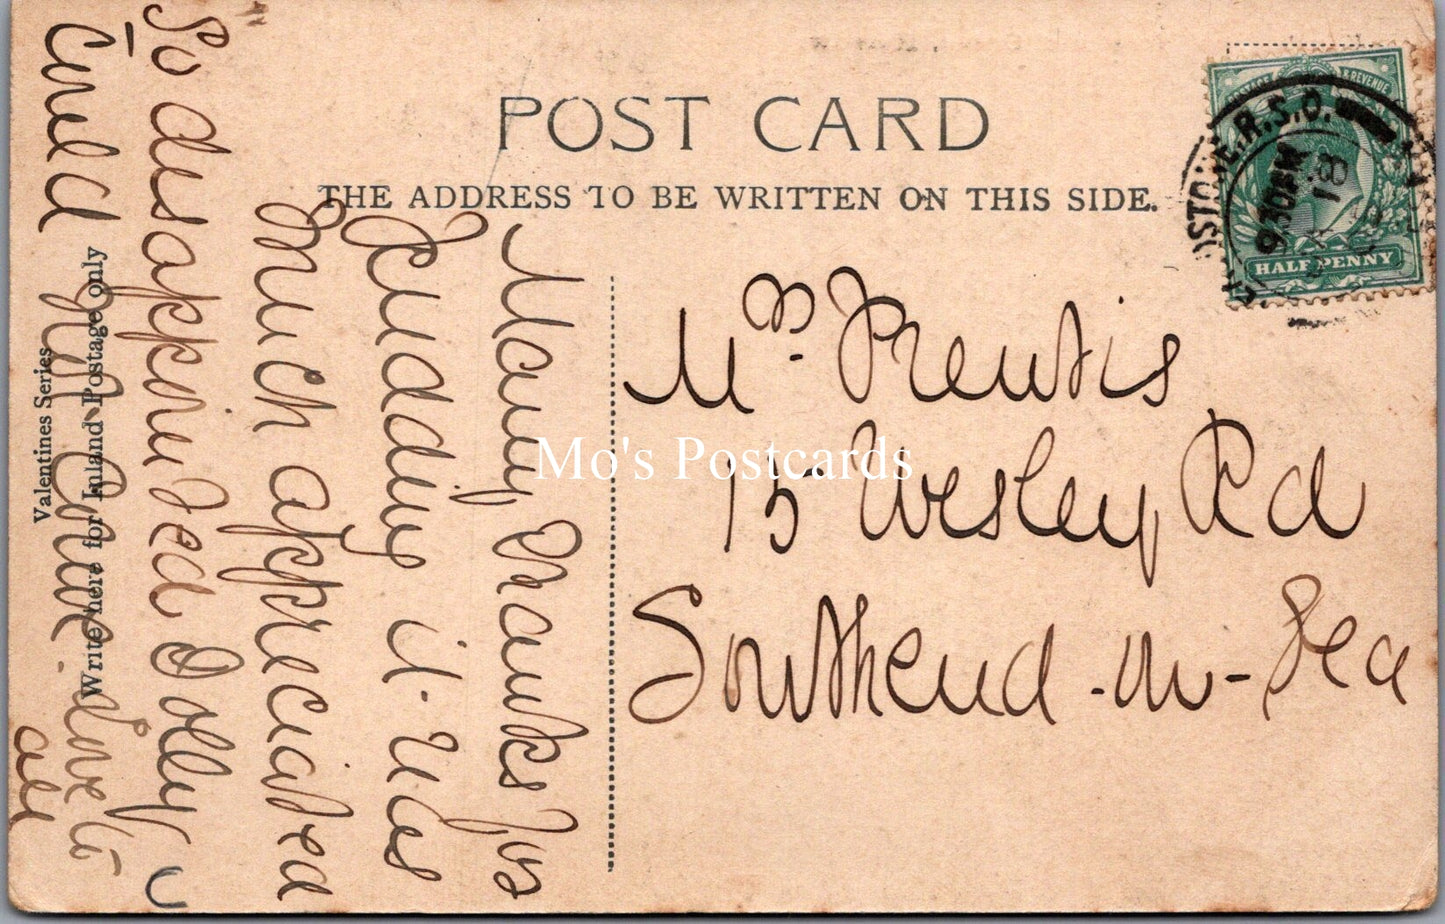 POST CARD
THE ADDRESS TO BE WRITTEN ON THIS SIDE.
POSTAGE & REVENUE
HALF PENNY
R.S.O.
9.30 PM
Many Thanks for
Pudding it was
much appreciated
So disappointed Dolly &
Cyril not
love to
all
Valentines Series
Write here for Inland Postage only
Mrs. Prentis
15 Wesley Rd
Southend-on-Sea
Mo's Postcards